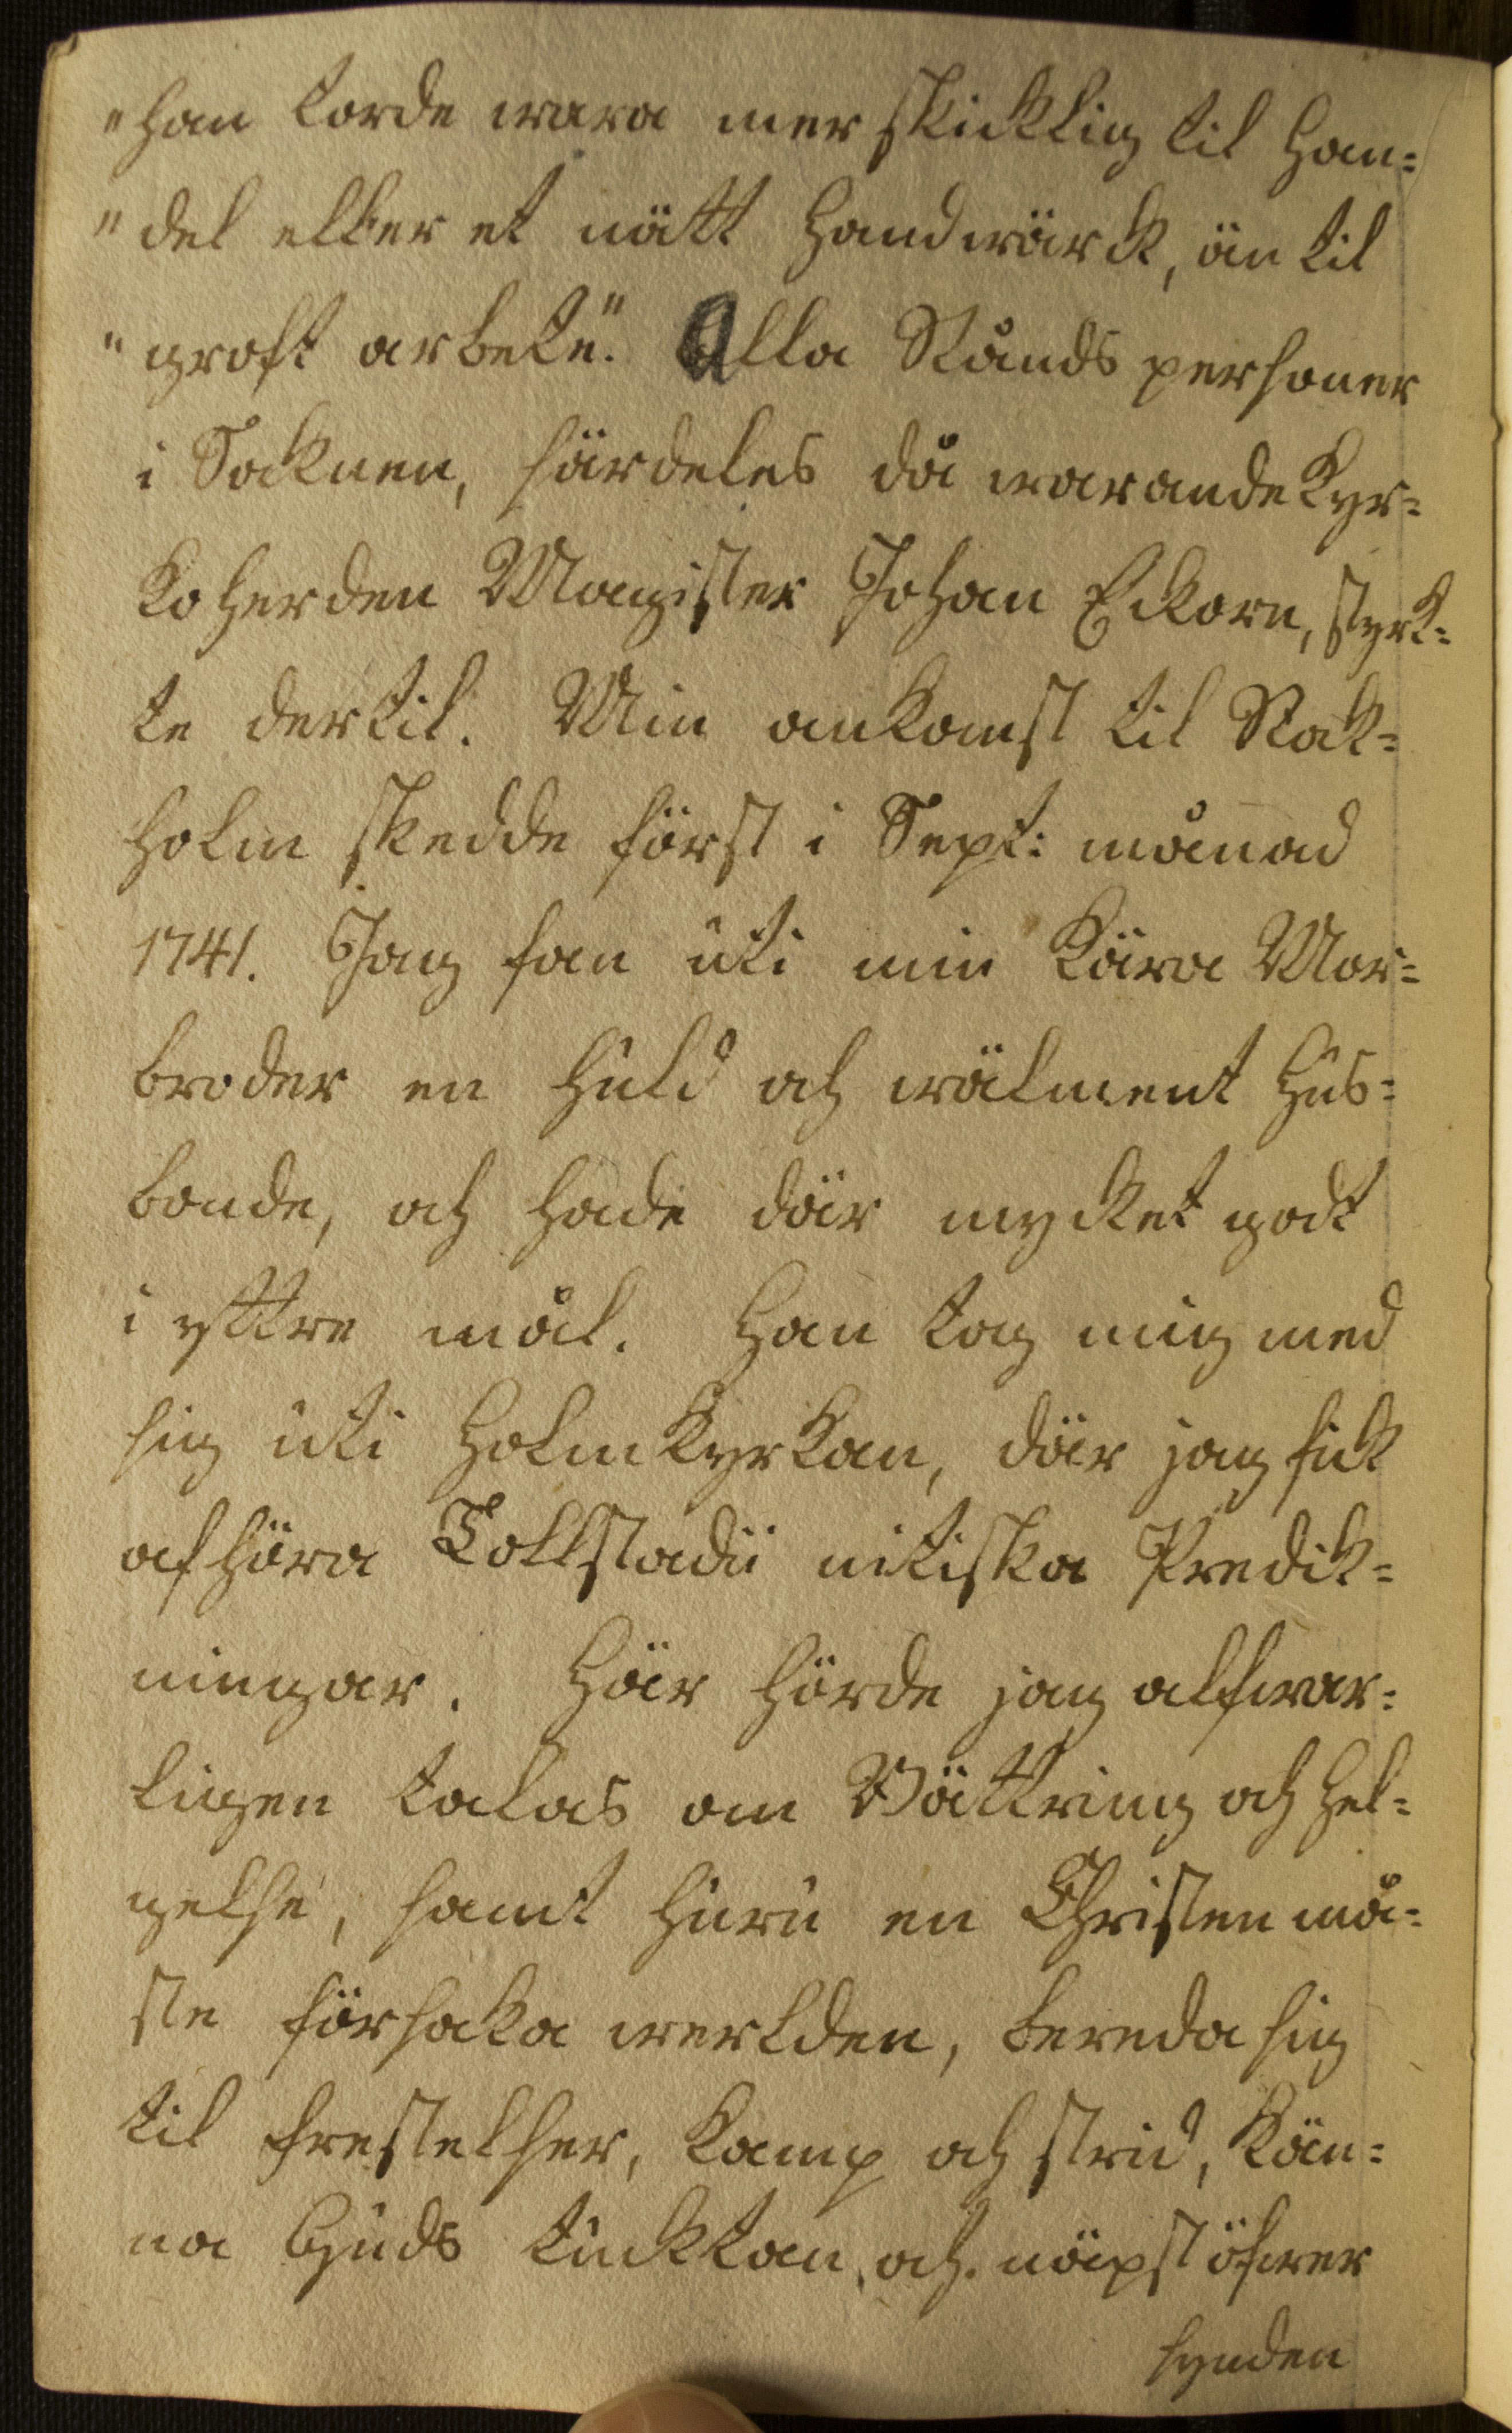 "han torde wara mer skicklig til Han=
"del eller et nätt Handwärck, än til
"groft arbete". Alla Stånds personer
i Socknen, särdeles då warande Kyr=
koherden Magister Johan Eckorn, styrk=
te dertil. Min ankomst til Stok=
holm skedde först i Sept: månad
1741. Jag fan uti min Kära Mor=
broder en huld och wälment Hus=
bonde, och hade där mycket godt
i yttre mål. Han tog mig med
sig uti Holmkyrkan, där jag fick
afhöra Tollstadii nitiska Predik=
ningar. Här hörde jag alfwar=
ligen talas om Bättring och Hel=
gelse, samt huru en Christen må=
ste försaka werlden, bereda sig
til frestelser, Kamp och strid, Kän=
na Guds tucktan, och näpst öfwer
synden